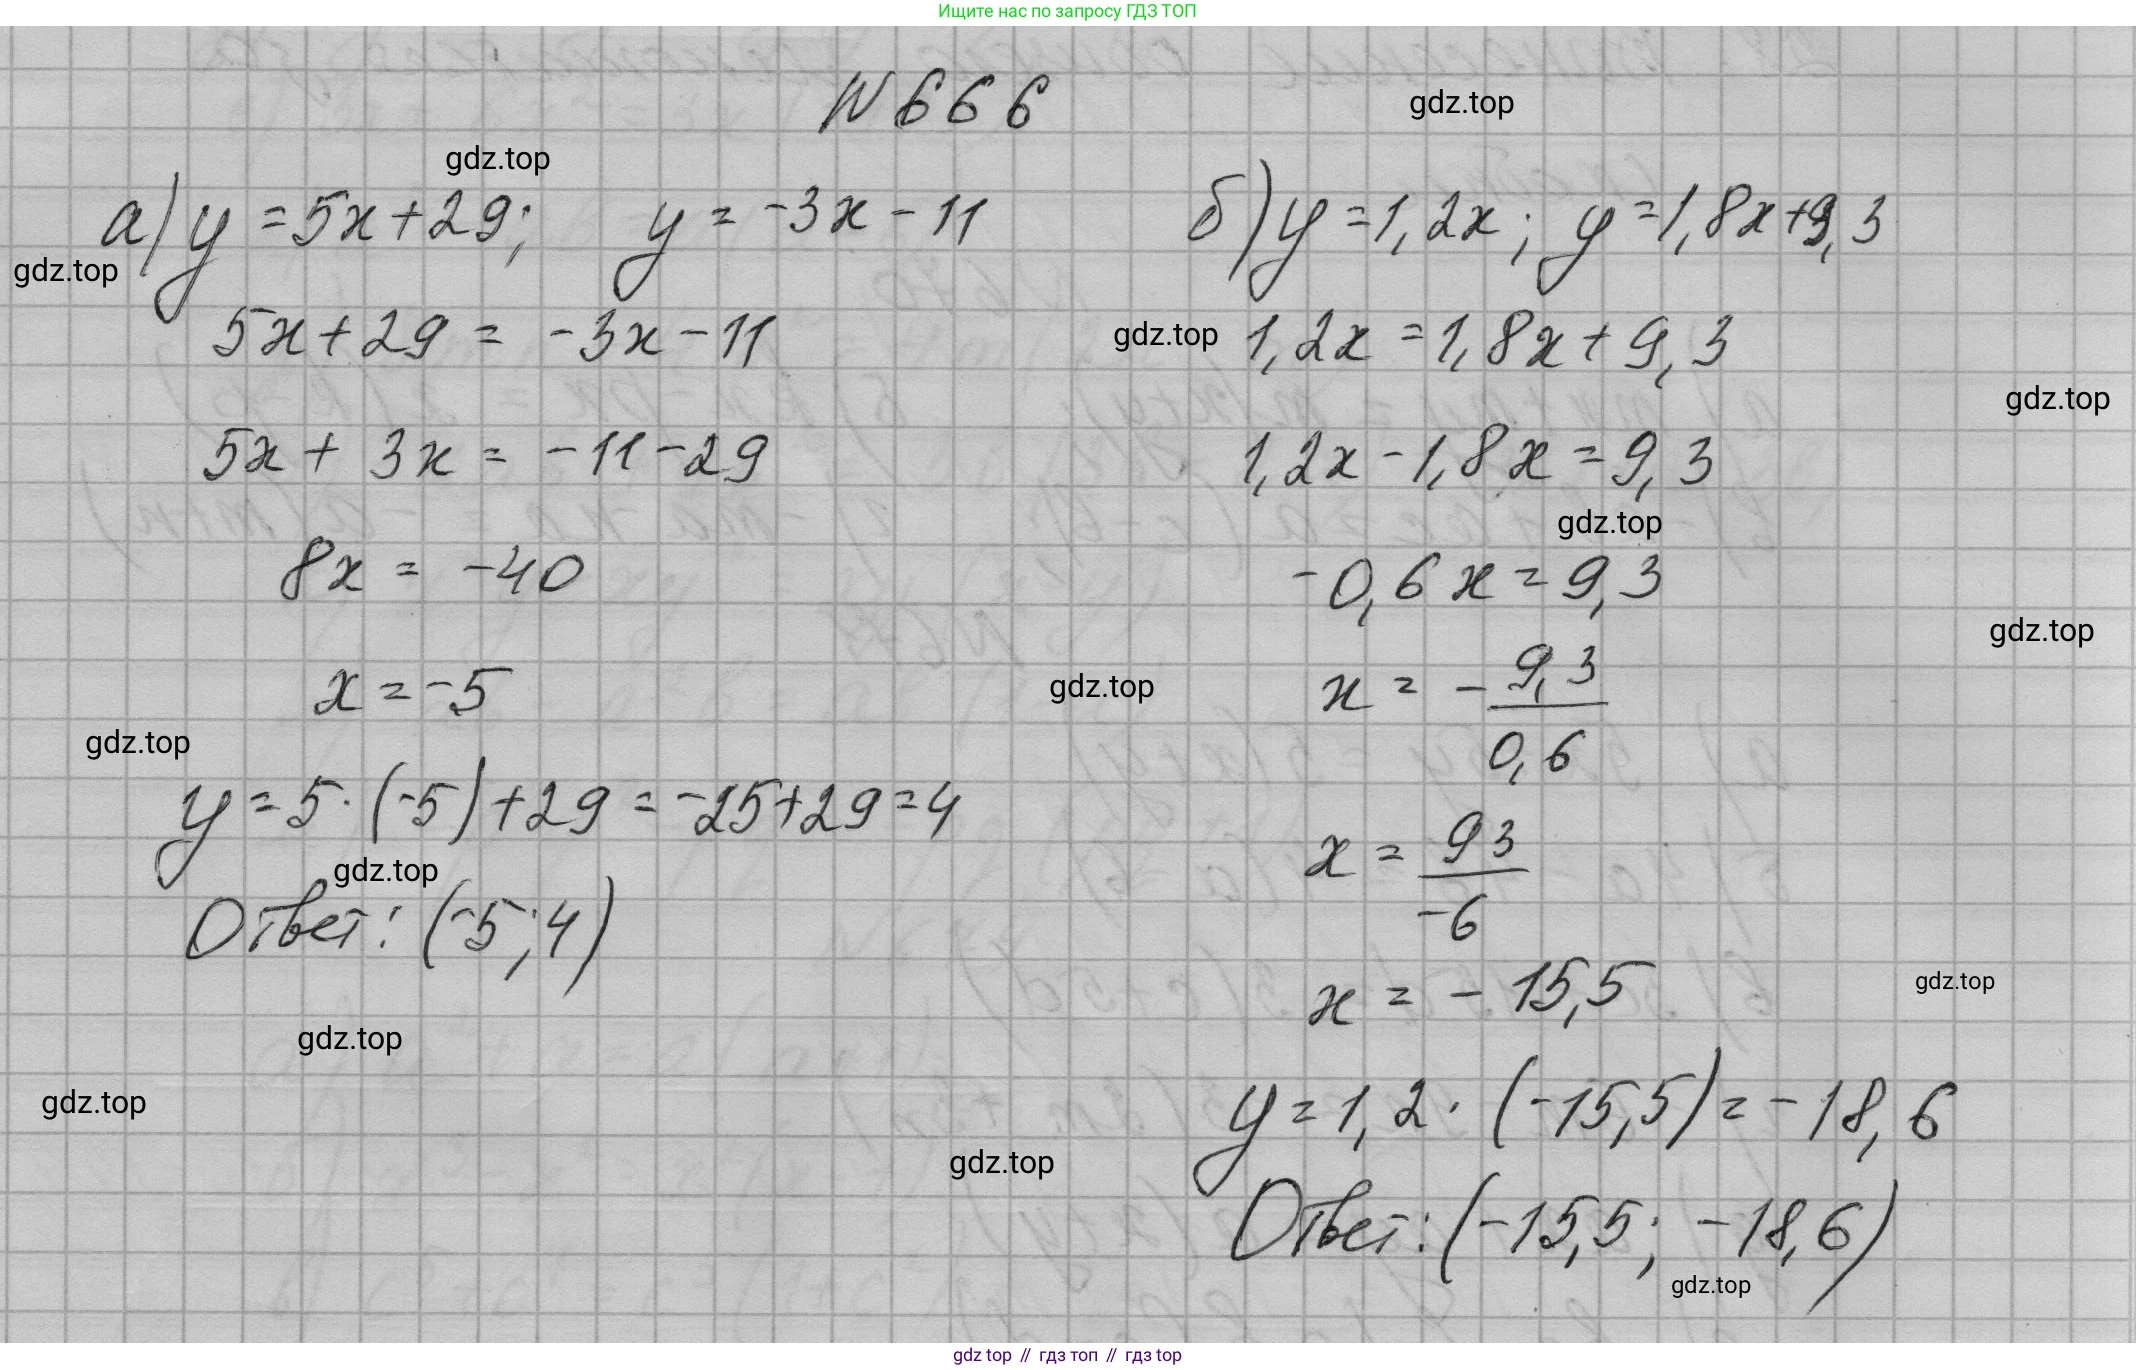 Ищите нас по запросу ГДЗ ТОП
N 666
gdz.top
gdz.top
а) y = 5x + 29; y = -3x - 11
gdz.top
5x + 29 = -3x - 11
5x + 3x = -11 - 29
8x = -40
x = -5
gdz.top
y = 5 · (-5) + 29 = -25 + 29 = 4
gdz.top
Ответ: (-5; 4)
gdz.top
gdz.top
б) y = 1,2x; y = 1,8x + 9,3
gdz.top
1,2x = 1,8x + 9,3
gdz.top
1,2x - 1,8x = 9,3
gdz.top
-0,6x = 9,3
gdz.top
gdz.top
x = - 9,3
0,6
x = 93
-6
x = - 15,5
gdz.top
y = 1,2 · (-15,5) = -18,6
gdz.top
Ответ: (-15,5; -18,6)
gdz.top
gdz top // гдз топ // гдз top